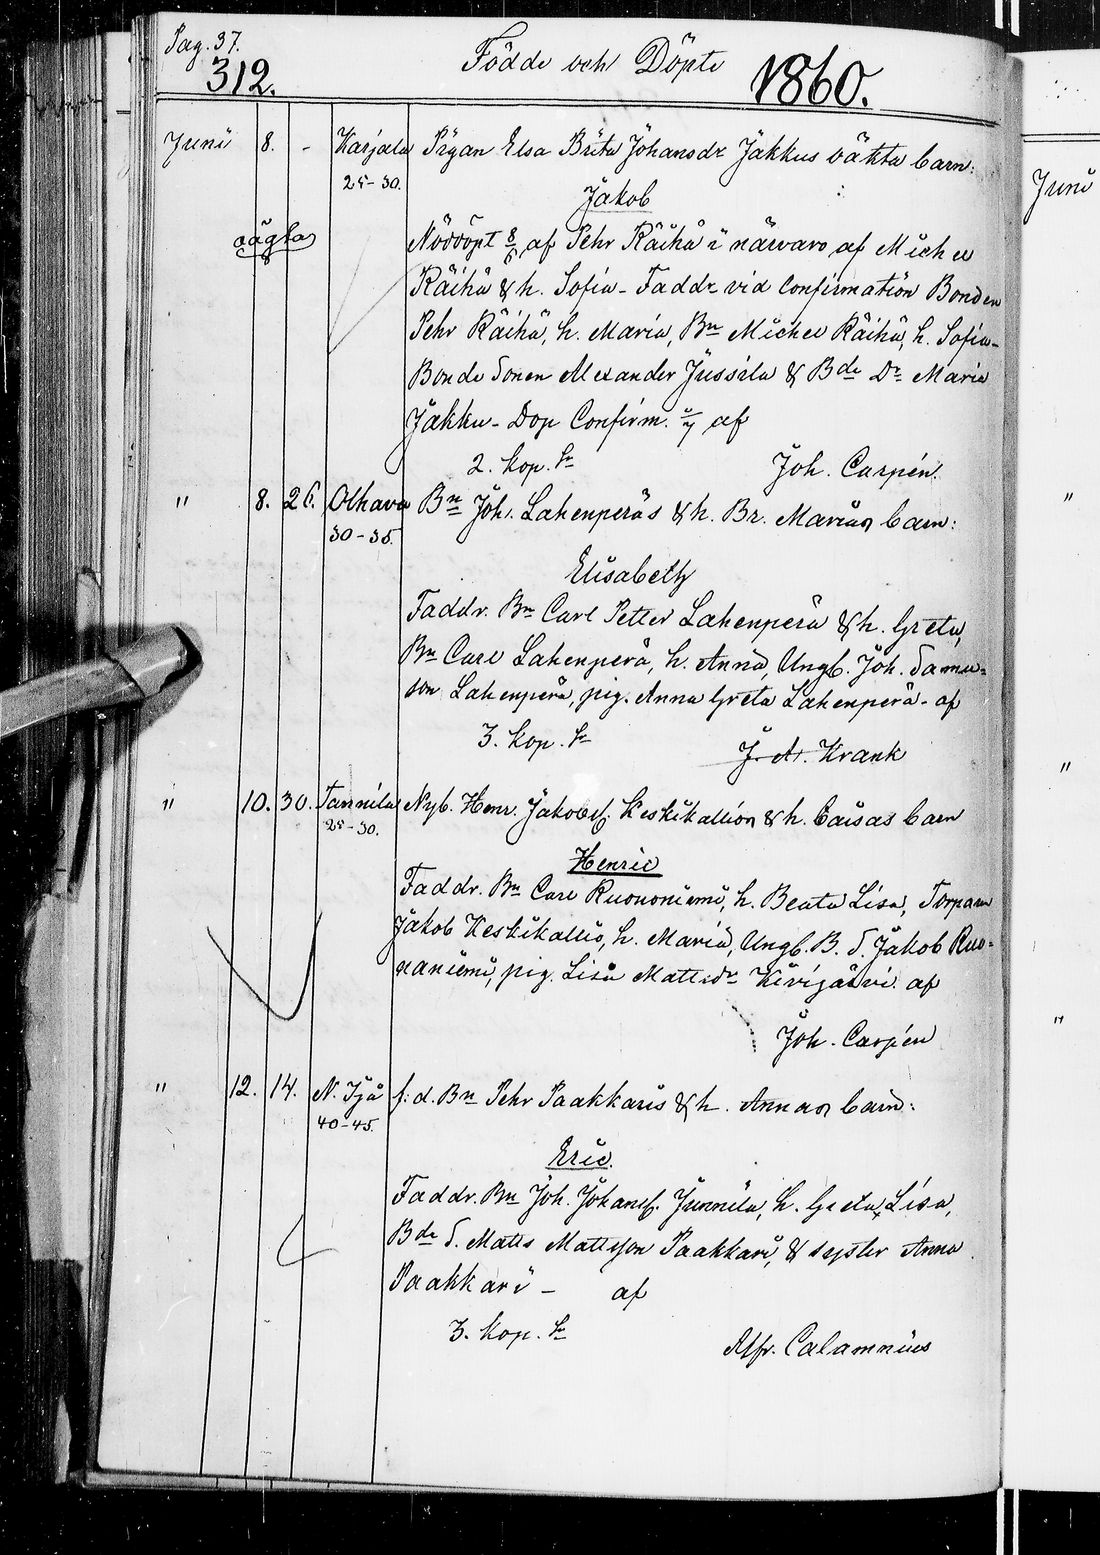 Pag. 37.
312.
Födde och Döpte
1860.
Juni 8. - Karjala Pigan Elsa Brita Johansdr Jakkus oäkta barn:
25-30.
Jakob
oägta
Nöddöpt 8/6 af Pehr Räihä i närvaro af Michel
Räihä & h. Sofia - Faddr vid Confirmation Bonden
Pehr Räihä, h. Maria, Bn Michel Räihä, h. Sofia -
Bonde Sonen Alexander Jussila & Bde Dr Maria
Jakku - Dop Confirm. /7 af
2. Kop. Sr
Joh. Carpén.
" 8. 26. Olhava Bn Joh. Lahenperäs & h. Br. Marias barn:
30-35.
Elisabeth
Faddr. Bn Carl Petter Lahenperä & h. Greta,
Bn Carl Lahenperä, h. Anna, Ungk. Joh. Samu-
son Lahenperä, pig. Anna Greta Lahenperä - af
3. Kop. Sr
J. A. Krank
" 10. 30. Tannila Nyb. Henr. Jakobsf. Keskikallion & h. Caisas barn
25-30.
Henric
Faddr. Bn Carl Ruononiemi, h. Beata Lisa, Torparn
Jakob Keskikallio, h. Maria, Ungk. B. S. Jakob Ruo-
naniemi, pig. Lisa Mattsdr Kivijärvi. af
Joh. Carpén
" 12. 14. N. Ijå f. d. Bn Pehr Paakkaris & h. Annas barn:
40-45.
Eric.
Faddr. Bn Joh. Johansf. Junnila, h. Greta Lisa,
Bde S. Matts Mattsson Paakkari, & syster Anna
Paakkari - af
3. Kop. Sr
Alfr. Calamnius
Juni
"
"
"